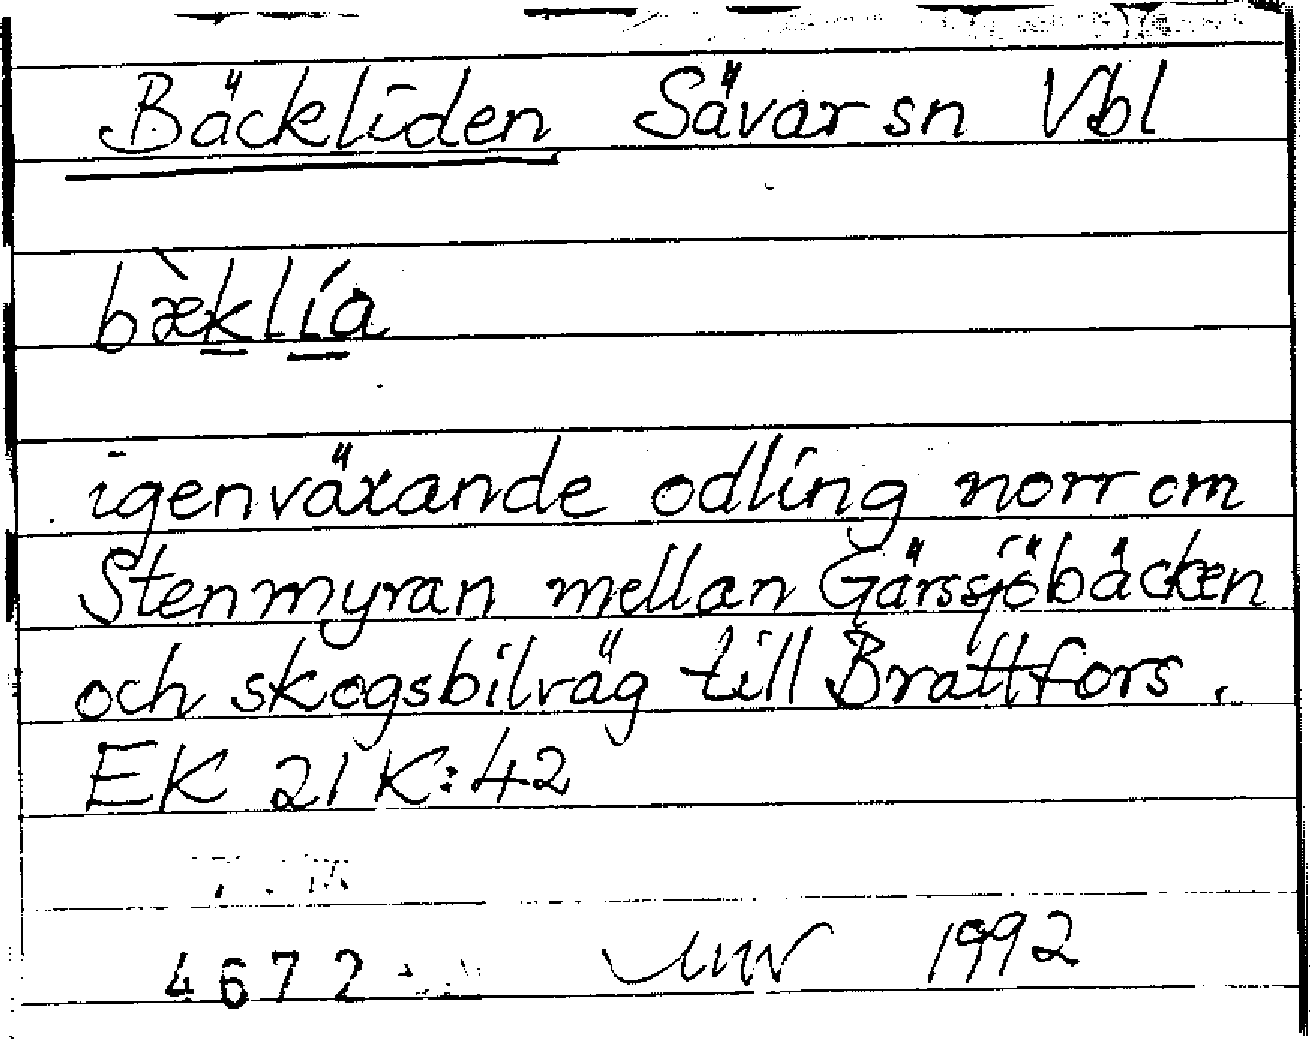 Bäckliden Sävar sn Vbl
bæ̀klía
igenväxande odling norr om
Stenmyran mellan Gärssjöbäcken
och skogsbilväg till Brattfors.
EK 21 K:42
4672 1992